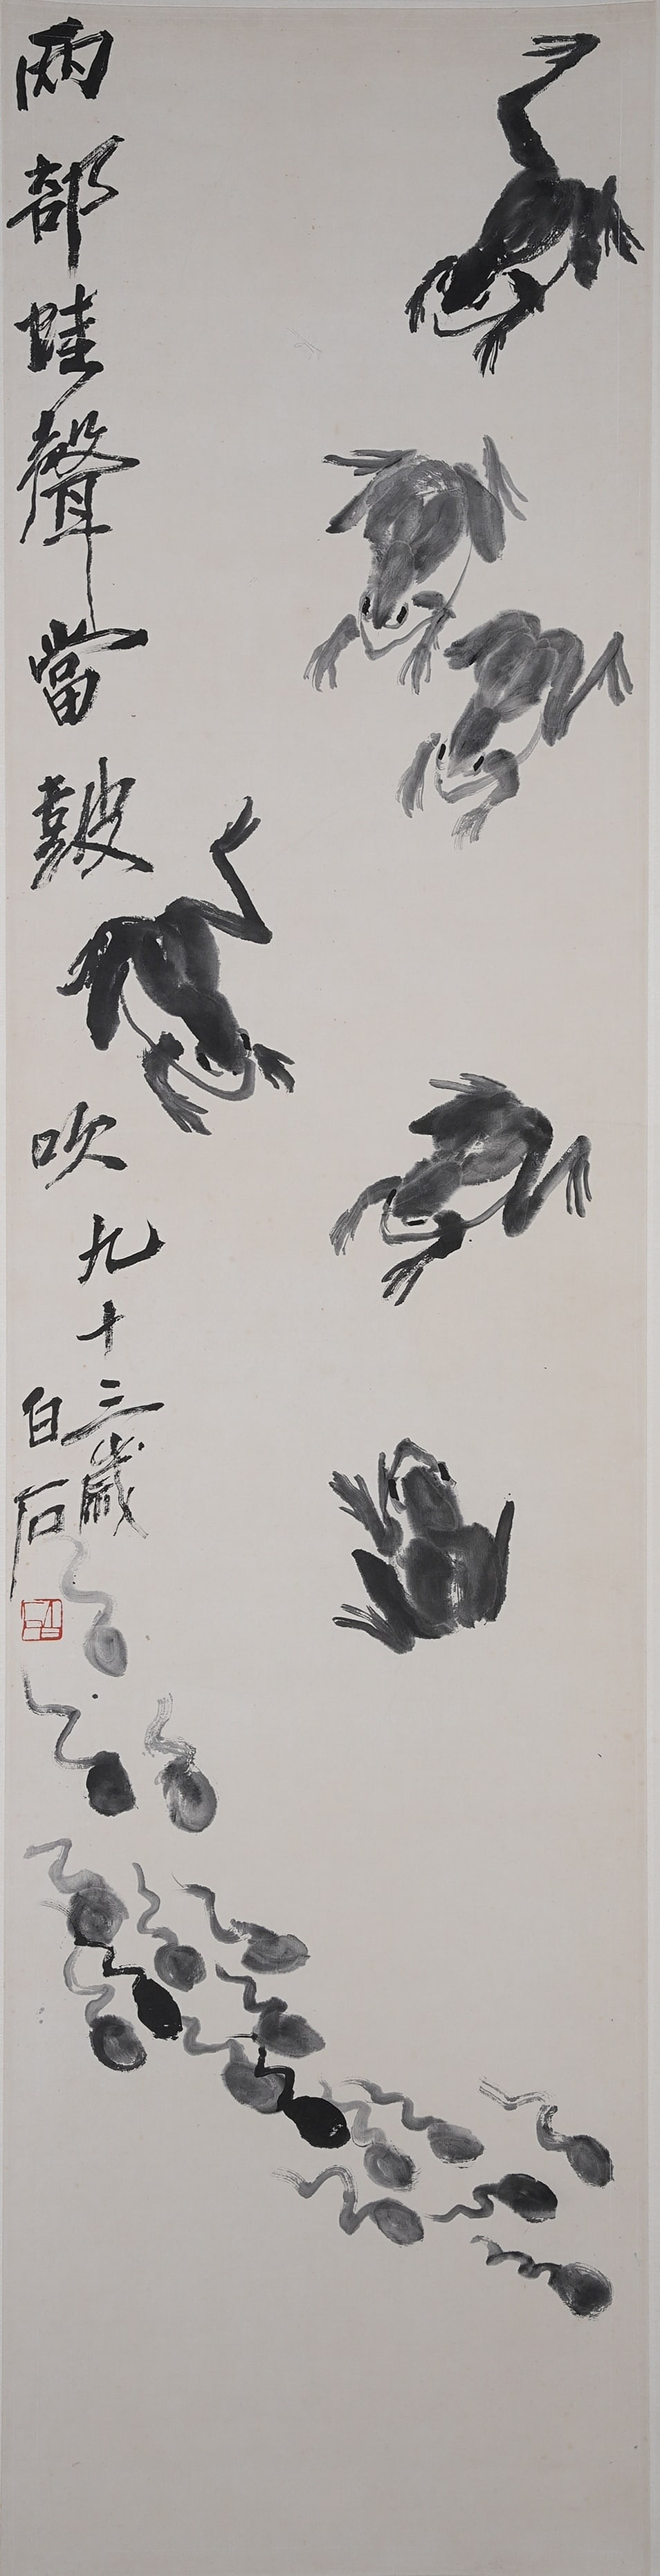 兩部蛙聲當鼓吹九十三歲
白石